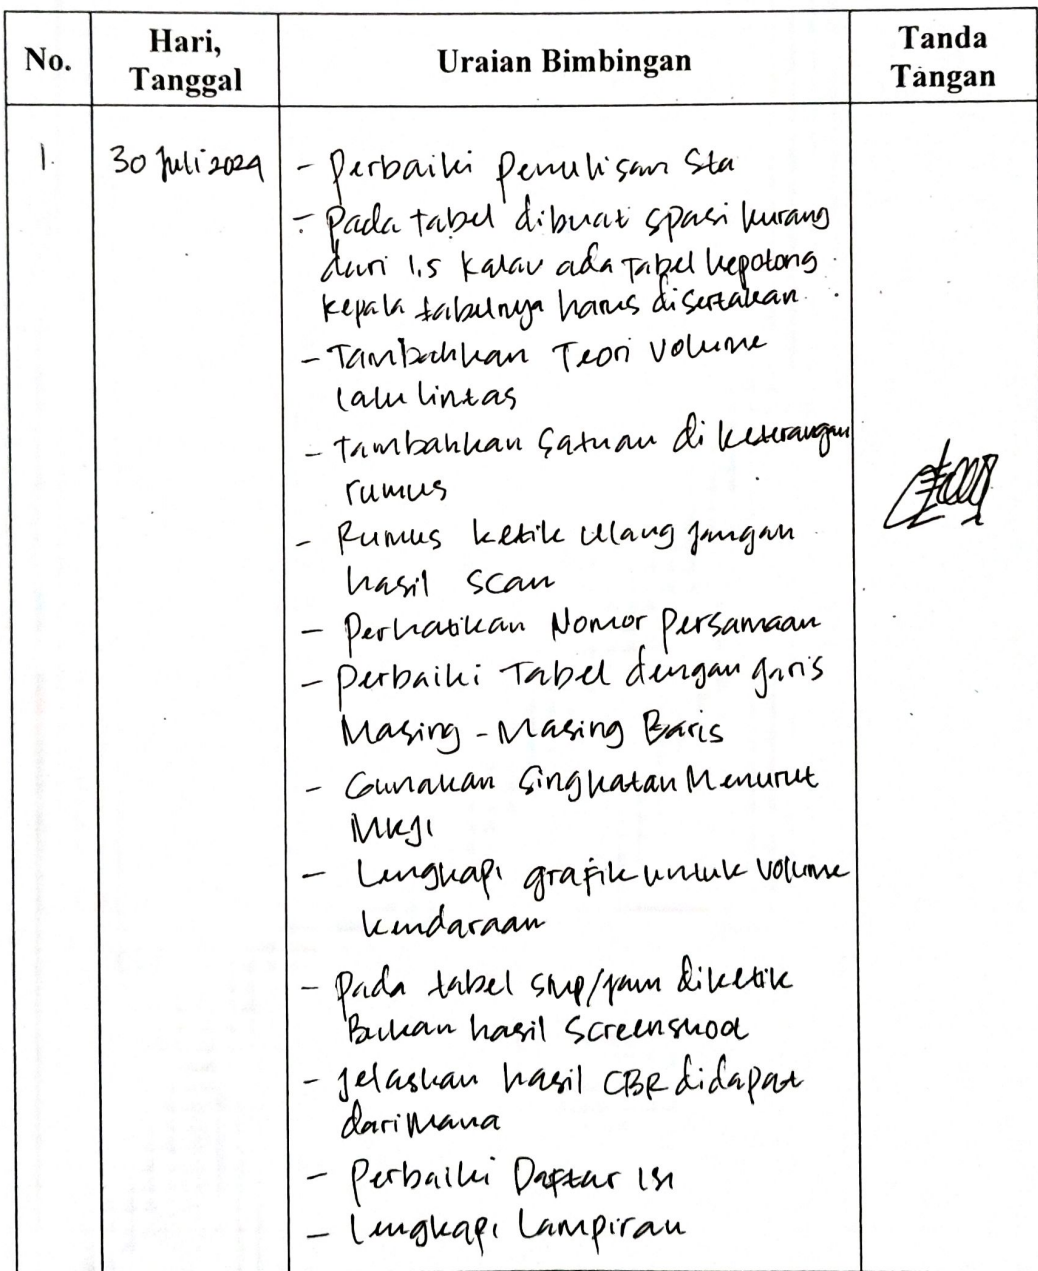 No.
Hari,
Tanggal
Uraian Bimbingan
Tanda
Tangan
1.
30 Juli 2024
- Perbaiki Penulisan Sta
- Pada tabel dibuat spasi kurang
dari 1,5 Kalau ada Tabel kepotong
kepala tabelnya harus disertakan.
- Tambahkan Teori Volume
lalu lintas
- tambahkan Satuan di keterangan
rumus
- Rumus ketik ulang jangan
hasil scan
- Perhatikan Nomor Persamaan
- Perbaiki Tabel dengan garis
Masing - Masing Baris
- Gunakan Singkatan Menurut
MKJI
- Lengkapi grafik untuk Volume
kendaraan
- Pada tabel smp/jam diketik
Bukan hasil Screenshoot
- Jelaskan hasil CBR didapat
dari Mana
- Perbaiki Daftar Isi
- Lengkapi Lampiran